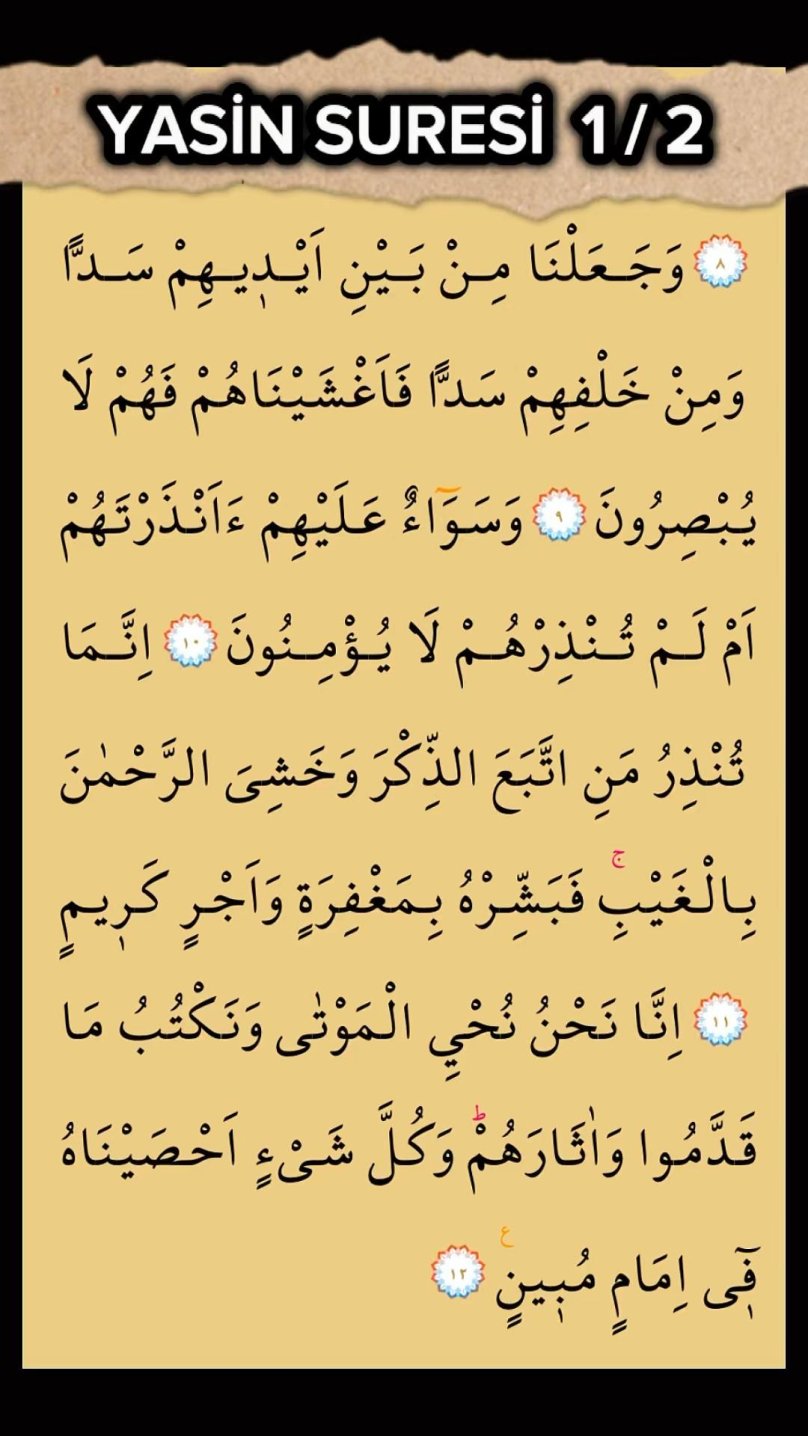 YASİN SURESİ 1 / 2
٨ وَجَعَلْنَا مِنْ بَيْنِ اَيْدٖيهِمْ سَدًّا
وَمِنْ خَلْفِهِمْ سَدًّا فَاَغْشَيْنَاهُمْ فَهُمْ لَا
يُبْصِرُونَ ٩ وَسَوَٓاءٌ عَلَيْهِمْ ءَاَنْذَرْتَهُمْ
اَمْ لَمْ تُنْذِرْهُمْ لَا يُؤْمِنُونَ ١٠ اِنَّمَا
تُنْذِرُ مَنِ اتَّبَعَ الذِّكْرَ وَخَشِىَ الرَّحْمٰنَ
بِالْغَيْبِۚ فَبَشِّرْهُ بِمَغْفِرَةٍ وَاَجْرٍ كَرٖيمٍ
١١ اِنَّا نَحْنُ نُحْيِ الْمَوْتٰى وَنَكْتُبُ مَا
قَدَّمُوا وَاٰثَارَهُمْؕ وَكُلَّ شَىْءٍ اَحْصَيْنَاهُ
فٖٓى اِمَامٍ مُبٖينٍ ع ١٢